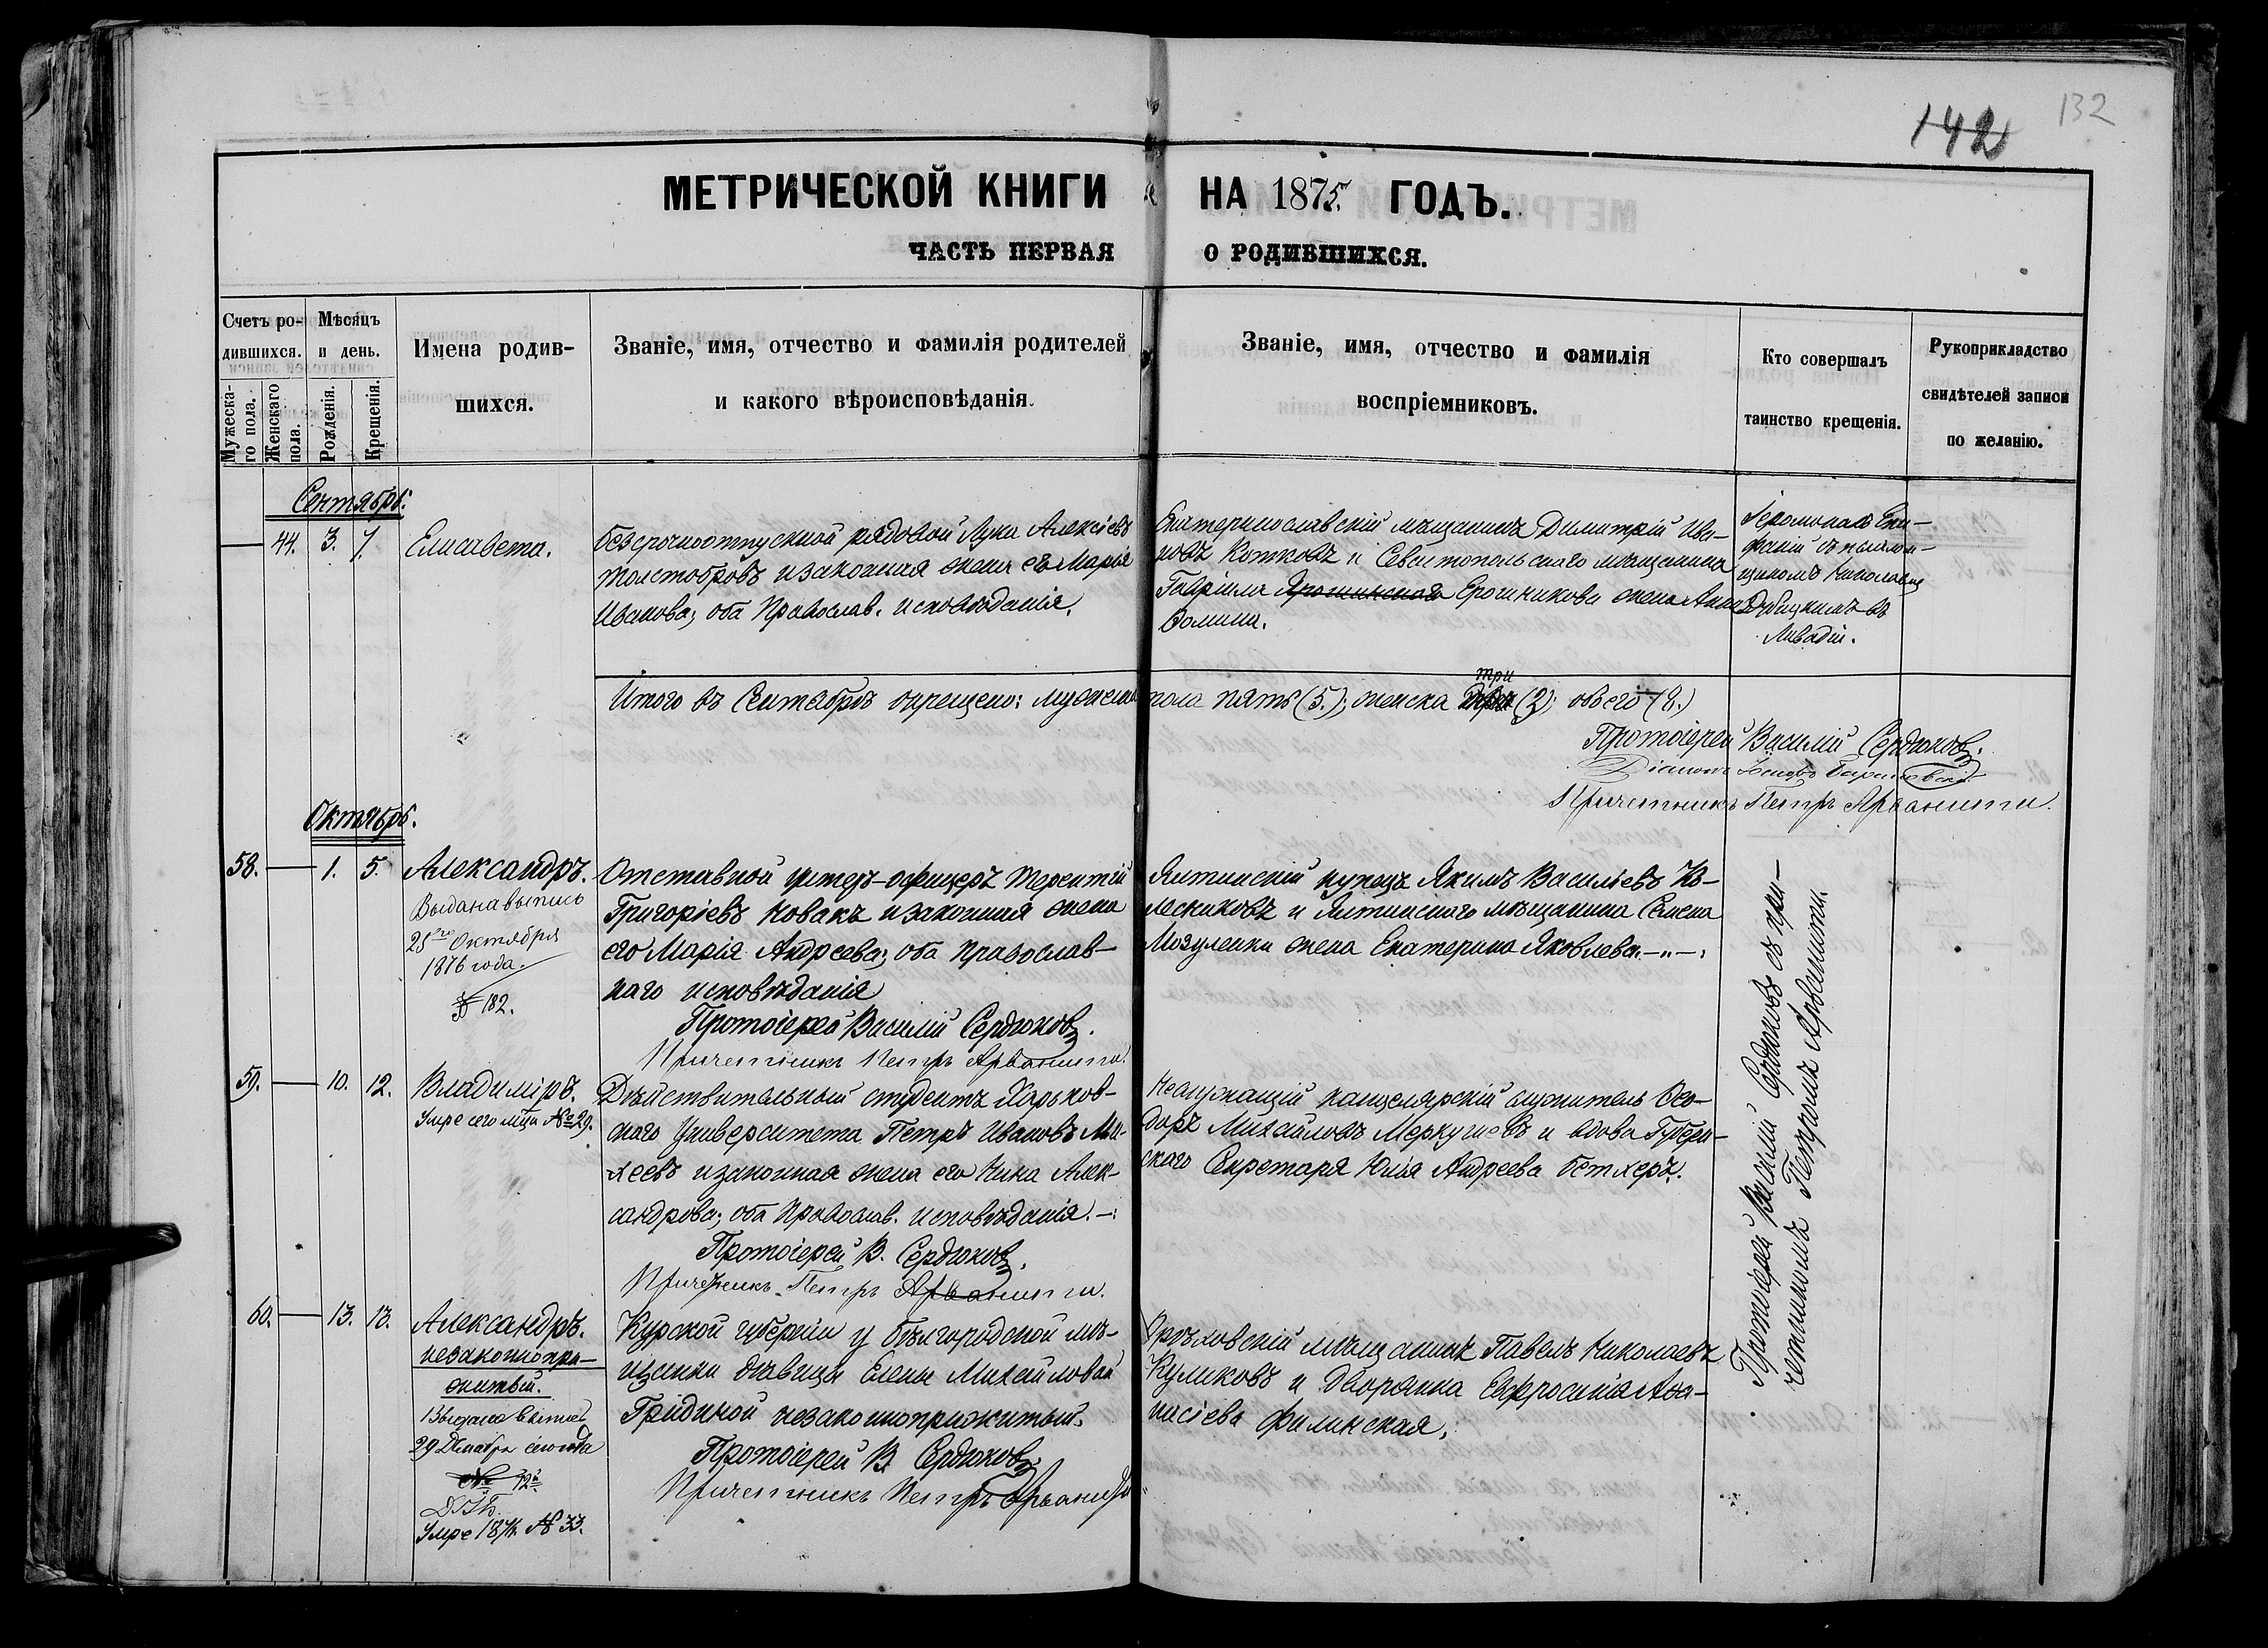 142
132
МЕТРИЧЕСКОЙ КНИГИ НА 1875. ГОДЪ.
ЧАСТЬ ПЕРВАЯ О РОДИВШИХСЯ.
Счетъ ро-
дившихся.
Мужеска-
го пола.
Женскаго
пола.
Мѣсяцъ
и день.
Рожденія.
Крещенія.
Имена родив-
шихся.
Званіе, имя, отчество и фамилія родителей
и какого вѣроисповѣданія.
Званіе, имя, отчество и фамилія
воспріемниковъ.
Кто совершалъ
таинство крещенія.
Рукоприкладство
свидѣтелей записи
по желанію.
Сентябрь:
44. 3. 7. Елисавета.
безсрочноотпускной рядовой Лука Алексіевъ
Толстобровъ и законная жена его Марія
Иванова; оба Православ. исповѣданія.
Екатеринославскій мѣщанинъ Димитрій Ива-
новъ Котковъ и Севастопольскаго мѣщанина
Гавріила Ерошникова жена Анна
Фомина.
Іеромонахъ Епи-
фаній съ псалом-
щикомъ Николаемъ
въ
Ливадіи.
Итого въ Сентябрѣ окрещено: мужеска пола пять (5.); женска три (3); обоего (8.)
Протоіерей Василій Сердюковъ.
Діаконъ
Причетникъ Петръ Арванити.
Октябрь.
58. 1. 5. Александръ.
Выдана выпись
25го Октября
1876 года.
№ 182.
Отставной унтеръ-офицеръ Терентій
Григоріевъ Новакъ и законная жена
его Марія Андреева; оба православ-
наго исповѣданія
Протоіерей Василій Сердюковъ.
Причетникъ Петръ Арванити.
Ялтинскій купецъ Якимъ Васильевъ Ко-
лесниковъ и Ялтинскаго мѣщанина Семена
Мозуленки жена Екатерина Яковлева.
59. 10. 12. Владиміръ.
Умре сего мца № 29.
Дѣйствительный студентъ Харьков-
скаго Университета Петръ Ивановъ Ми-
хеевъ и законная жена его Нина Алек-
сандрова; оба Православ. исповѣданія.
Протоіерей В. Сердюковъ.
Причетникъ Петръ Арванити.
Неслужащій канцелярскій служитель Ѳео-
доръ Михайловъ Меркушевъ и вдова Губерн-
скаго Секретаря Юлія Андреева Бетхеръ.
60. 13. 13. Александръ.
незаконнопри-
житый.
Выдана выпись
29 Декабря сего года
Умре 1876. № 33.
Курской губерніи у бѣлгородской мѣ-
щанки дѣвицы Елены Михайловой
Гридиной незаконноприжитый.
Протоіерей В. Сердюковъ
Причетникъ Петръ Арванити
Орѣховскій мѣщанинъ Павелъ Николаевъ
Куликовъ и Дворянка Евфросинія Аѳа-
насіева Филинская.
Протоіерей Василій Сердюковъ съ при-
четникомъ Петромъ Арванити.